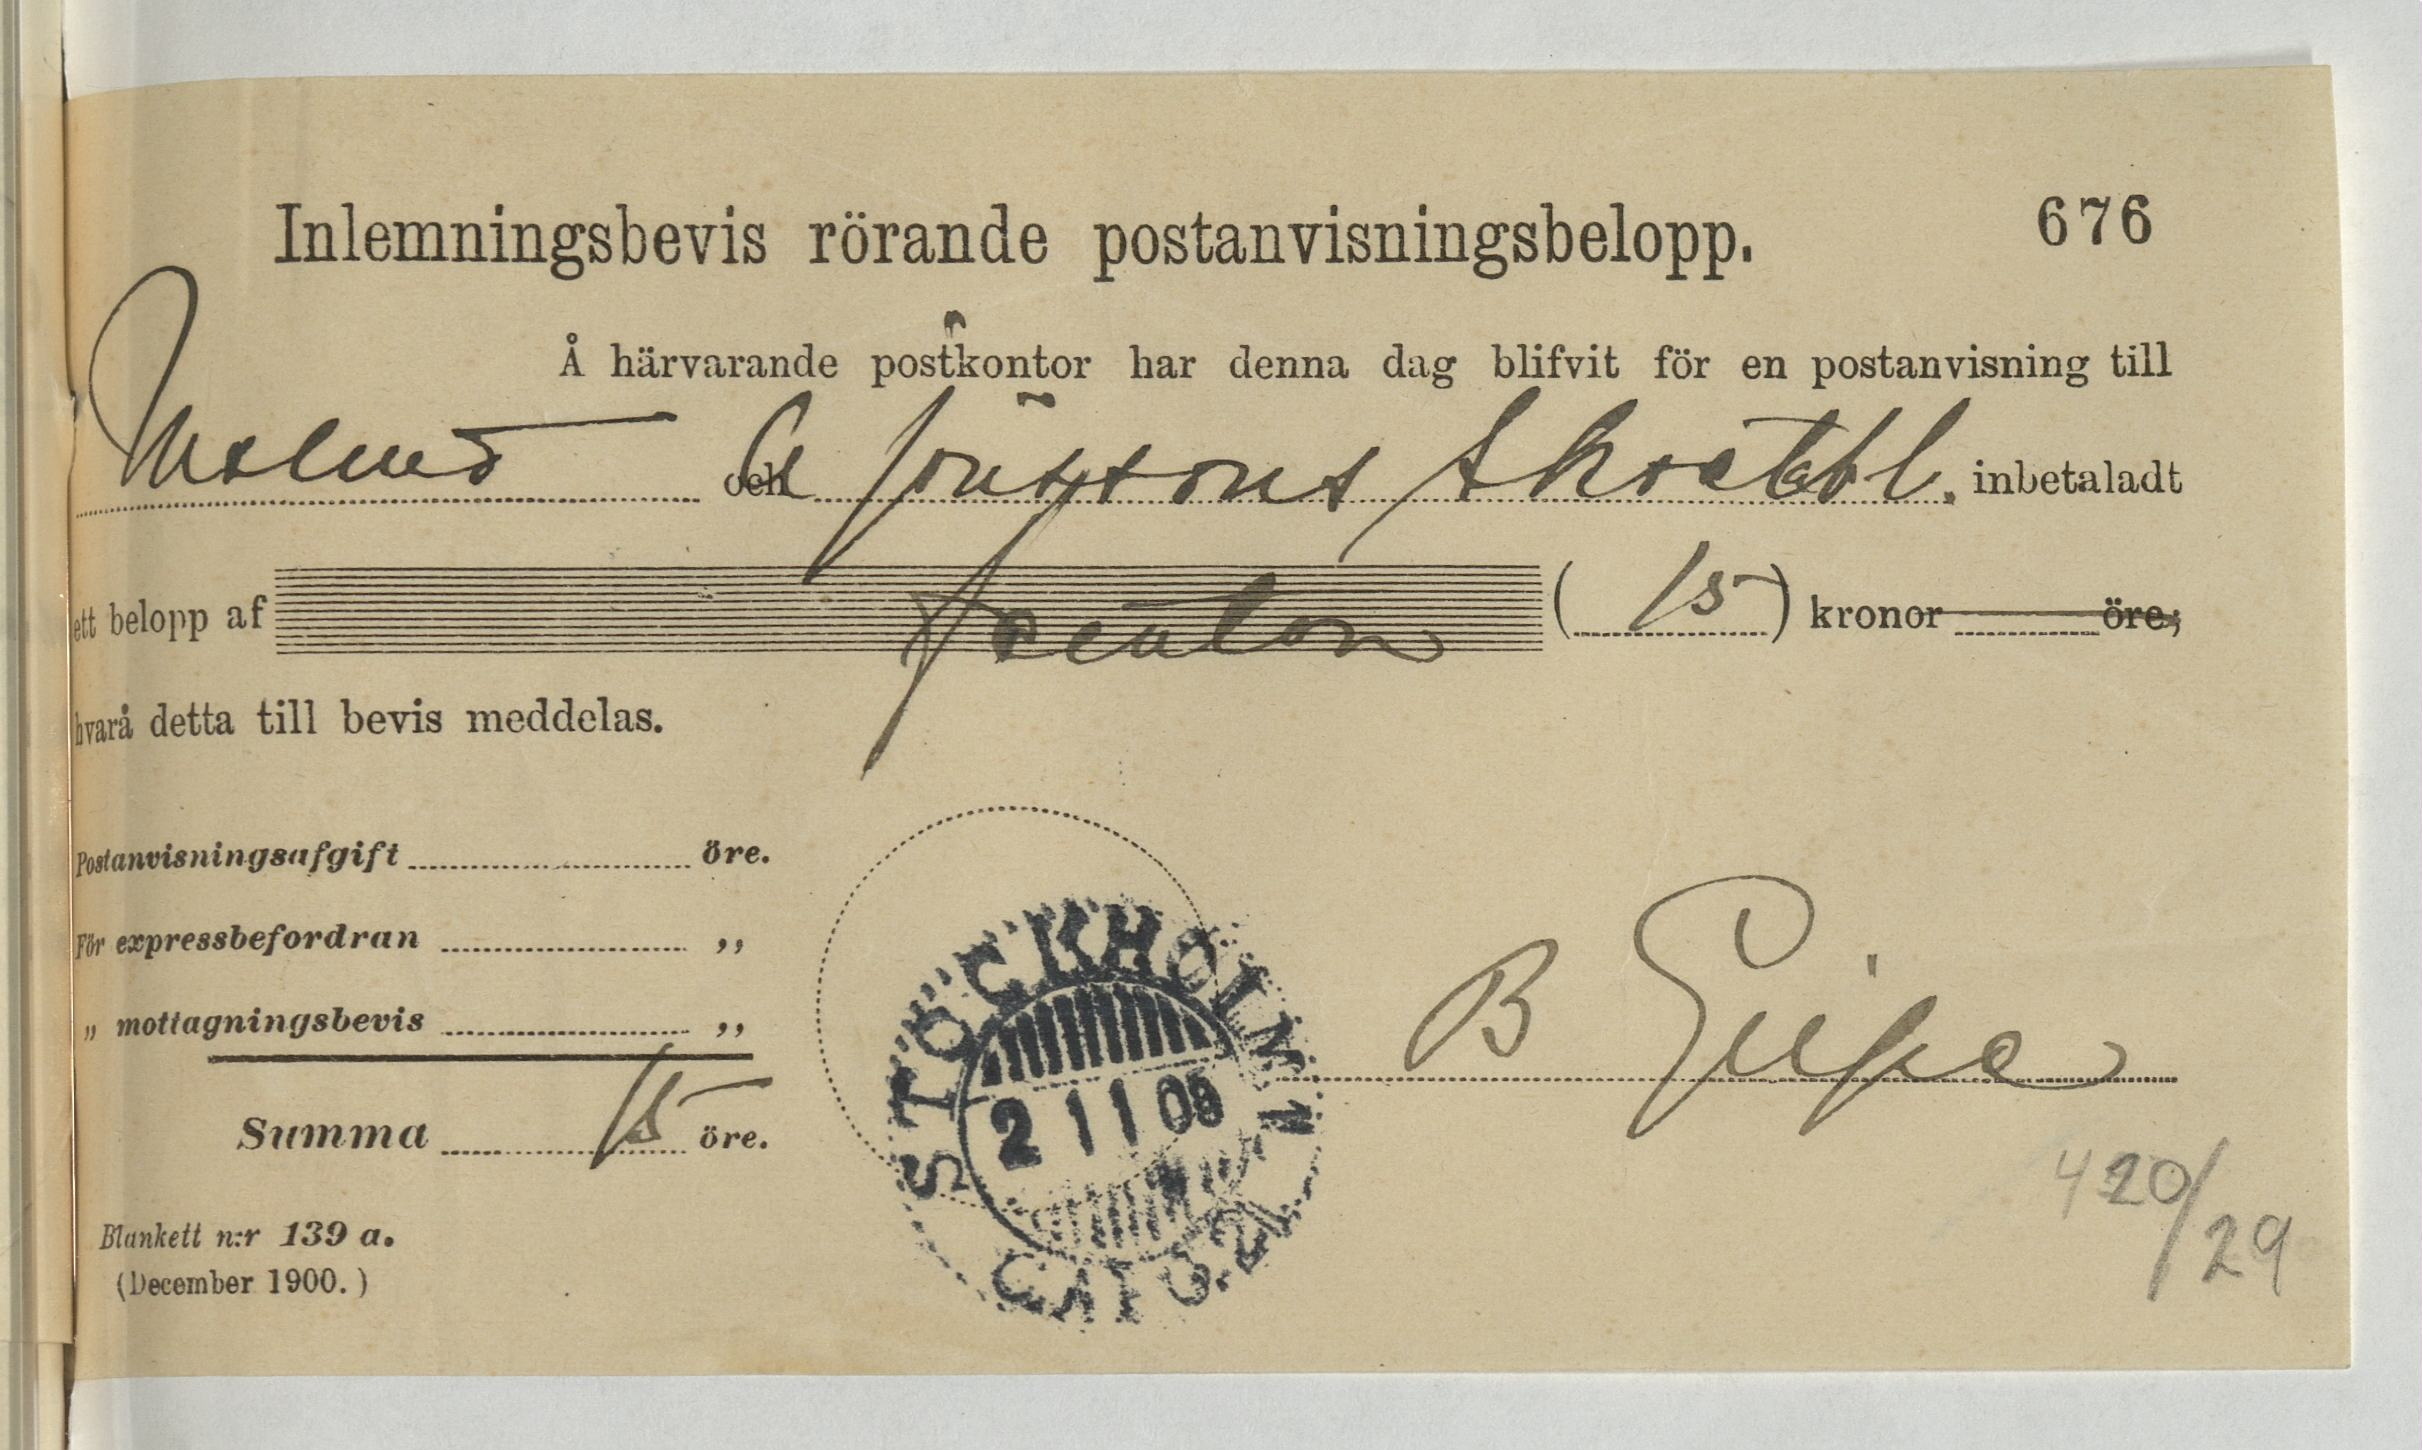 Inlemningsbevis rörande postanvisningsbelopp. 676
Å härvarande postkontor har denna dag blifvit för en postanvisning till
Malmö och Jönssons inbetaladt
ett belopp af femton (15) kronor öre;
hvarå detta till bevis meddelas.
Postanvisningsafgift öre.
För expressbefordran ,,
,, mottagningsbevis ,,
STOCKHOLM. 1.
2 11 05
B
Summa 15 öre.
420/29
Blankett n:r 139 a.
(December 1900.)